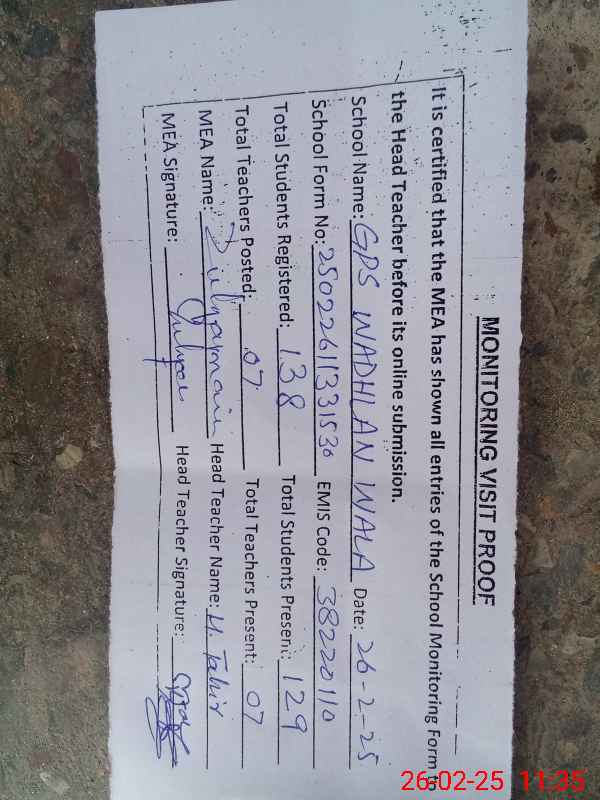 MONITORING VISIT PROOF
It is certified that the MEA has shown all entries of the School Monitoring Form to
the Head Teacher before its online submission.
School Name: GPS WADHLAN WALA Date: 26-2-25
School Form No: EMIS Code: 38220110
Total Students Registered: 138 Total Students Present: 129
Total Teachers Posted: 07 Total Teachers Present: 07
MEA Name: Head Teacher Name: M. Tahir
MEA Signature: Head Teacher Signature:
26-02-25 11:35